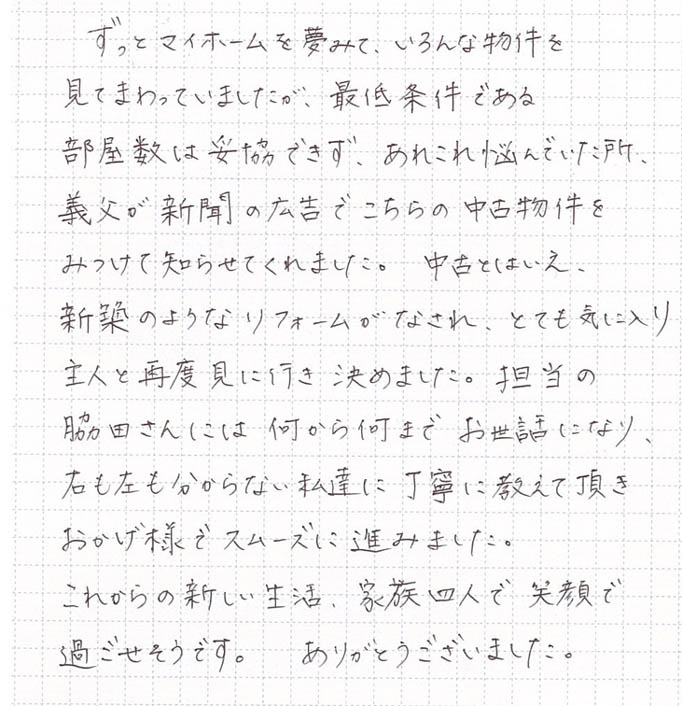 ずっとマイホームを夢みて、いろんな物件を
見てまわっていましたが、最低条件である
部屋数は妥協できず、あれこれ悩んでいた所、
義父が新聞の広告でこちらの中古物件を
みつけて知らせてくれました。 中古とはいえ、
新築のようなリフォームがなされ、とても気に入り
主人と再度見に行き決めました。担当の
脇田さんには何から何までお世話になり、
右も左も分からない私達に丁寧に教えて頂き
おかげ様でスムーズに進みました。
これからの新しい生活、家族四人で笑顔で
過ごせそうです。 ありがとうございました。